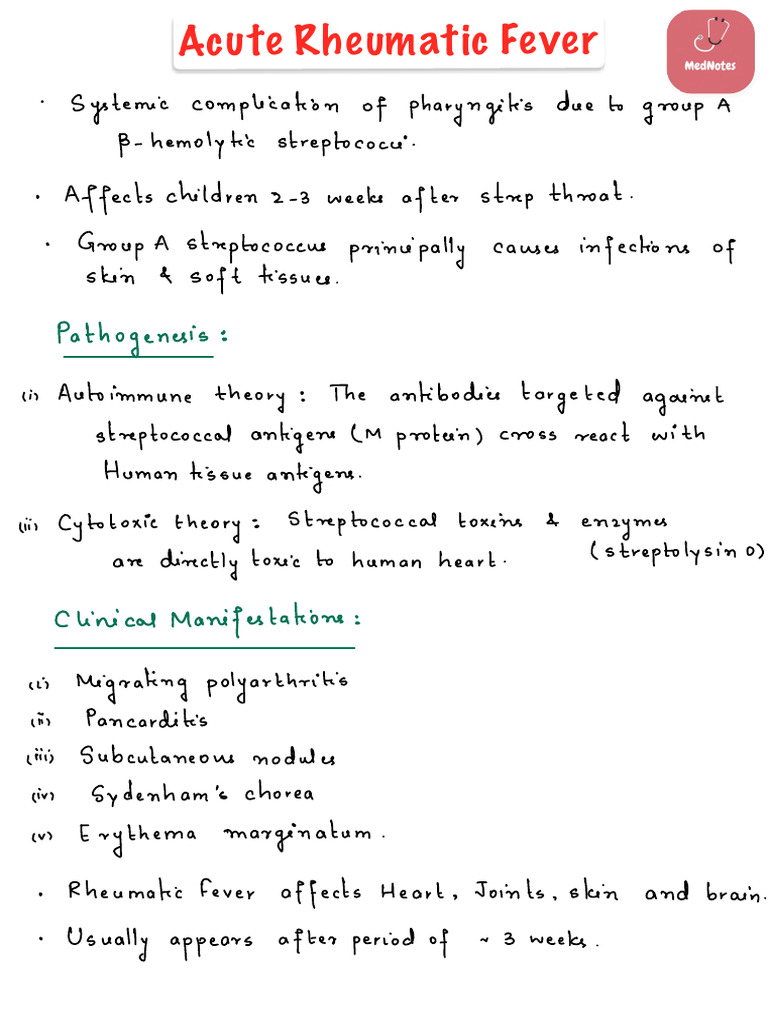 Acute Rheumatic Fever
MedNotes
· Systemic complication of pharyngitis due to group A
β-hemolytic streptococci.
· Affects children 2-3 weeks after strep throat.
· Group A streptococcus principally causes infections of
skin & soft tissues.
Pathogenesis :
(i) Autoimmune theory : The antibodies targeted against
streptococcal antigens (M protein) cross react with
Human tissue antigens.
(ii) Cytotoxic theory : Streptococcal toxins & enzymes
(streptolysin O)
are directly toxic to human heart.
Clinical Manifestations :
(i) Migrating polyarthritis
(ii) Pancarditis
(iii) Subcutaneous nodules
(iv) Sydenham's chorea
(v) Erythema marginatum.
· Rheumatic fever affects Heart, Joints, skin and brain.
· Usually appears after period of ~ 3 weeks.